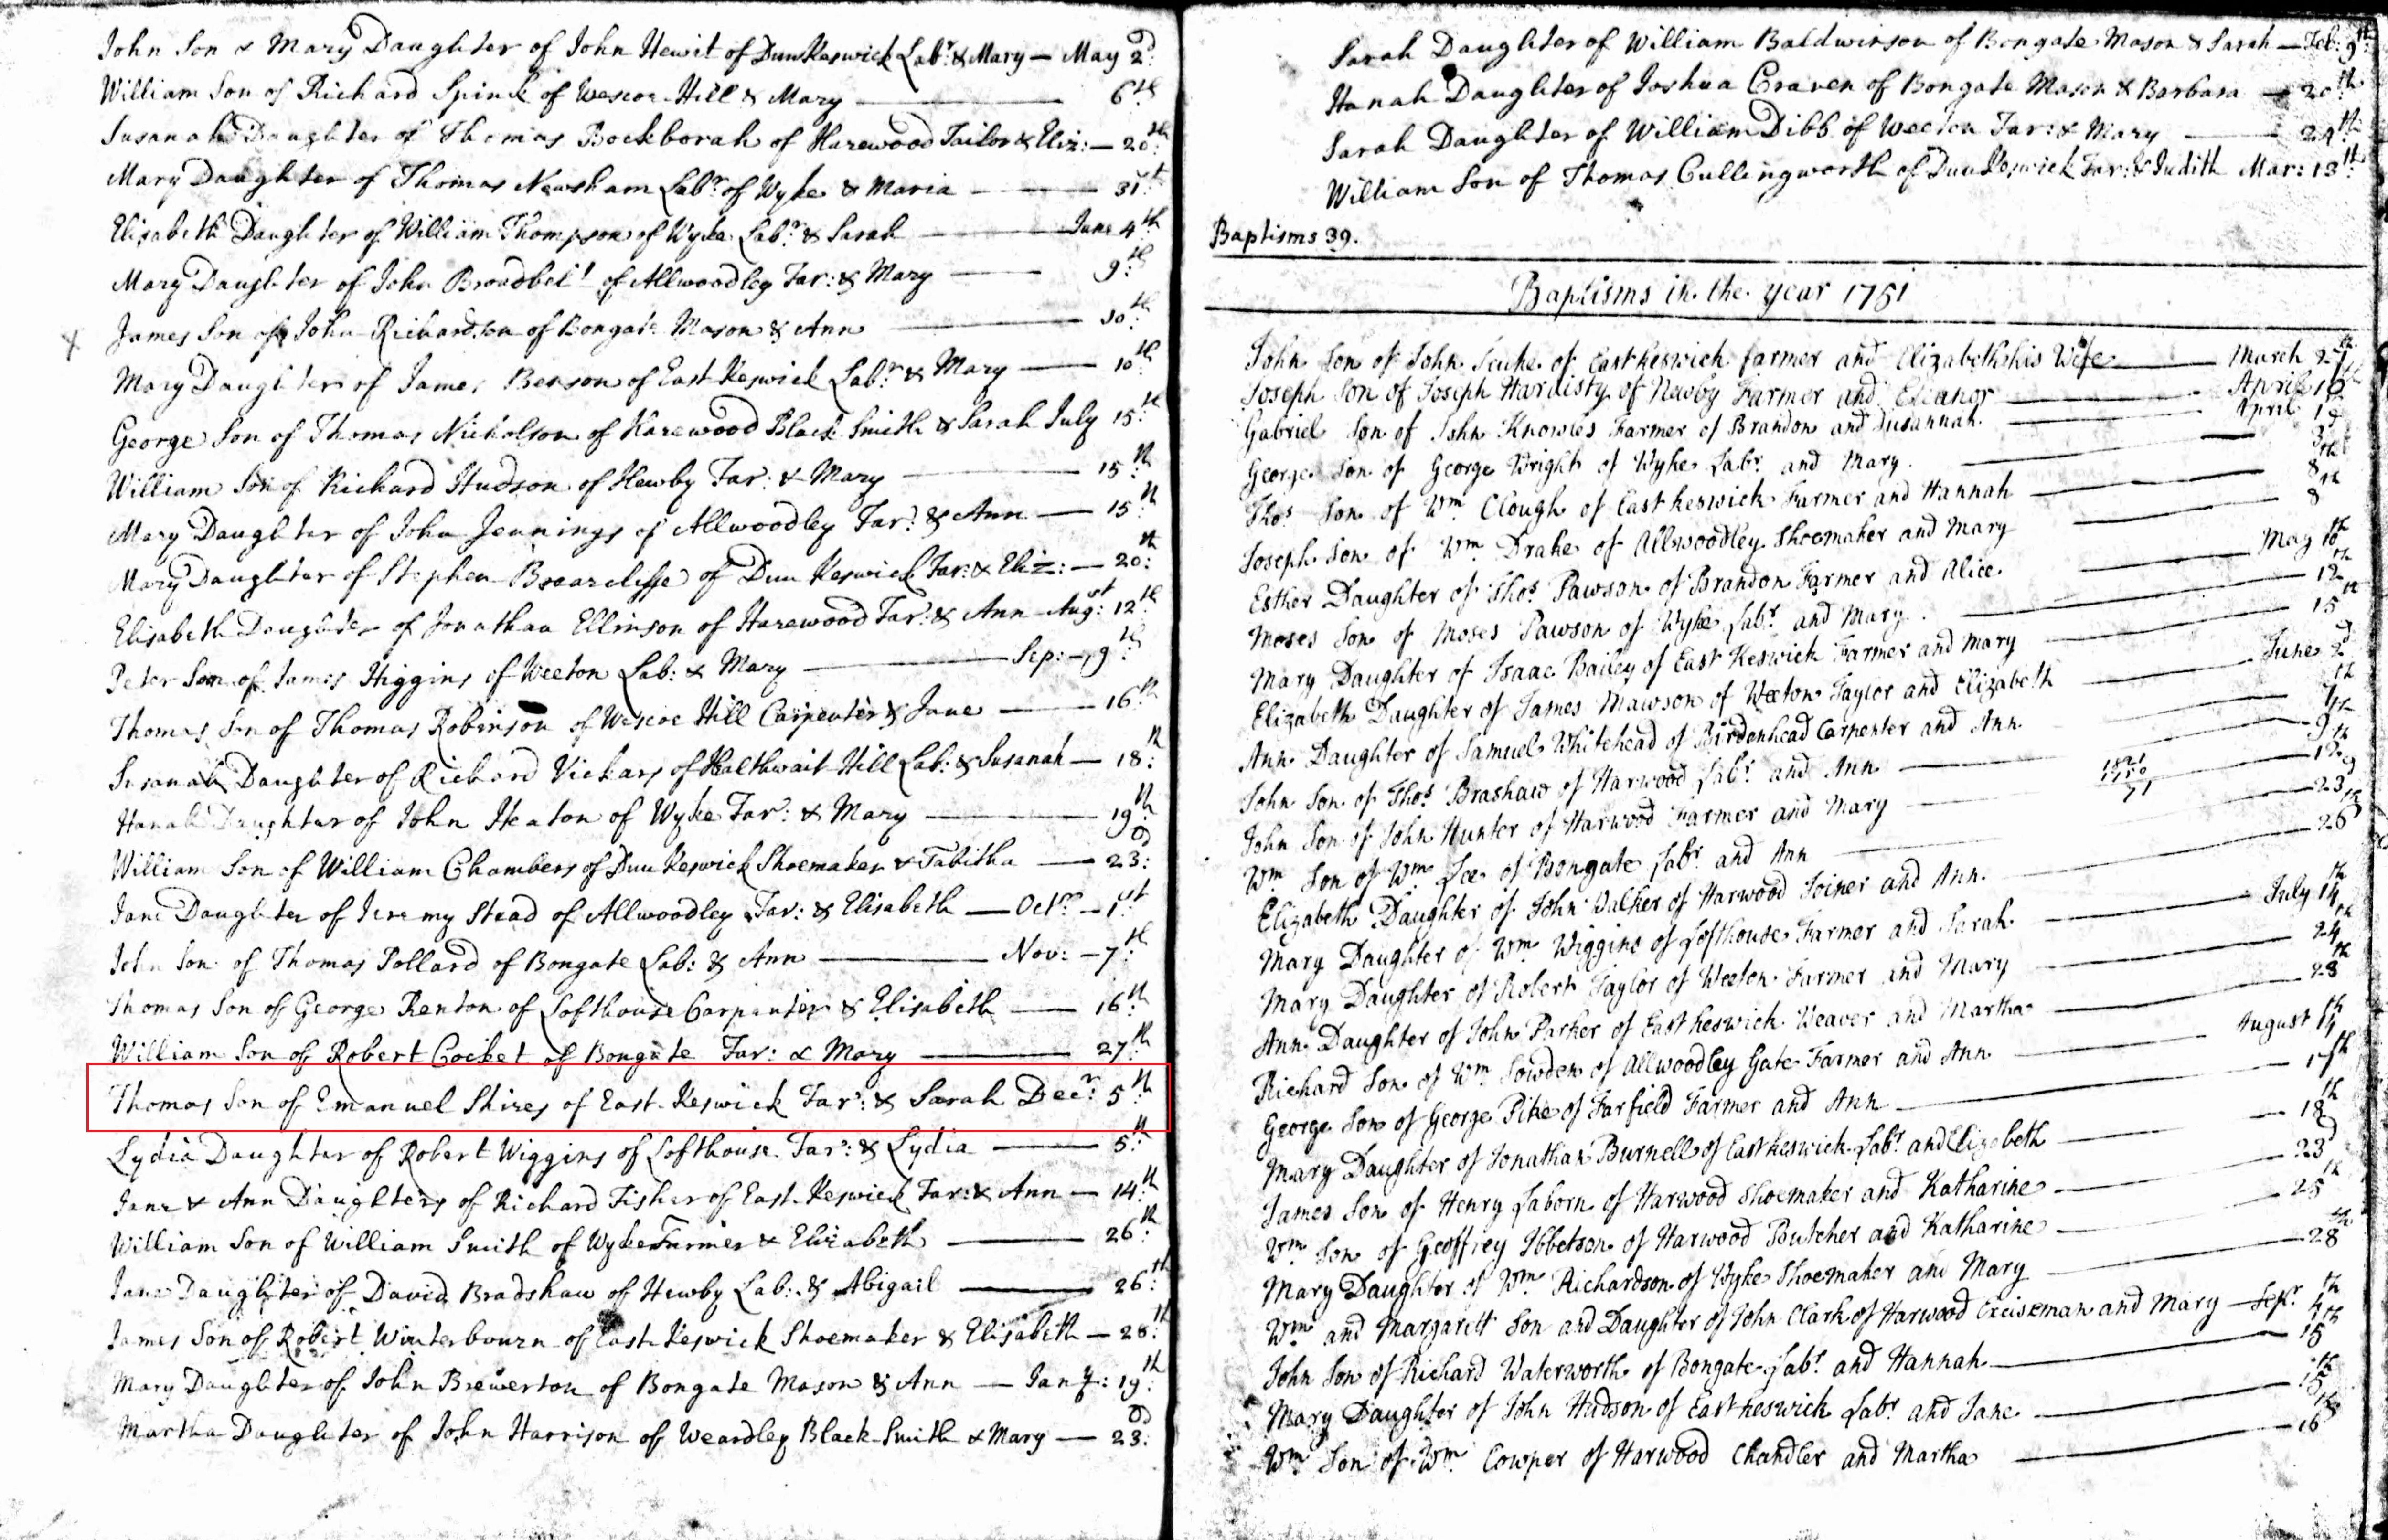 John Son & Mary Daughter of John Hewit of Dunkeswick Lab:r & Mary — May 2d:
William Son of Richard Spink of Wescoe Hill & Mary — 6th
Susanah Daughter of Thomas Bockborah of Harewood Tailor & Eliz: — 20th:
Mary Daughter of Thomas Newsham Lab:r of Wyke & Maria — 31st:
Elisabeth Daughter of William Thompson of Wyke Lab:r & Sarah — June 4th
Mary Daughter of John of Allwoodley Far: & Mary — 9th:
x James Son of John Richardson of Bongate Mason & Ann — 10th:
Mary Daughter of James Benson of East Keswick Lab:r & Mary — 10th:
George Son of Thomas Nicholson of Harewood Black Smith & Sarah July 15th:
William Son of Richard Hudson of Newby Far: & Mary — 15th:
Mary Daughter of John Jennings of Allwoodley Far: & Ann — 15th:
Mary Daughter of Stephen Brearcliffe of Dun Keswick Far: & Eliz: — 20th:
Elisabeth Daughter of Jonathan Ellinson of Harewood Far: & Ann Augst: 12th
Peter Son of James Higgins of Weeton Lab: & Mary — Sep: — 9th:
Thomas Son of Thomas Robinson of Wescoe Hill Carpenter & Jane — 16th:
Susanah Daughter of Richard Vickars of Halthwait Hill Lab: & Susanah — 18th:
Hanah Daughter of John Heaton of Wyke Far: & Mary — 19th:
William Son of William Chambers of Dunkeswick Shoemaker & Tabitha — 23d:
Jane Daughter of Jeremy Stead of Allwoodley Far: & Elisabeth — Octr: — 1st:
John Son of Thomas Pollard of Bongate Lab: & Ann — Nov: — 7th:
Thomas Son of George Renton of Lofthouse Carpenter & Elisabeth — 16th:
William Son of Robert Cocket of Bongate Far: & Mary — 27th:
Thomas Son of Emanuel Shires of East Keswick Far: & Sarah Decr: 5th:
Lydia Daughter of Robert Wiggins of Lofthouse Far: & Lydia — 5th:
Jane & Ann Daughters of Richard Fisher of East Keswick Far: & Ann — 14th:
William Son of William Smith of Wyke Farmer & Elizabeth — 26th:
Jane Daughter of David Bradshaw of Newby Lab: & Abigail — 26th:
James Son of Robert Winterbourn of East Keswick Shoemaker & Elisabeth — 28th:
Mary Daughter of John Brewerton of Bongate Mason & Ann — Jany: 19th:
Martha Daughter of John Harrison of Weardley Black Smith & Mary — 23d:
Sarah Daughter of William Baldwinson of Bongate Mason & Sarah — Feb: 9th:
Hanah Daughter of Joshua Craven of Bongate Mason & Barbara — 20th:
Sarah Daughter of William Dibb of Weeton Far: & Mary — 24th:
William Son of Thomas Cullingworth of Dunkeswick Far: & Judith Mar: 13th:
Baptisms 39.
Baptisms in the year 1751
John Son of John of East keswick farmer and Elizabeth his Wife — March 27th
Joseph Son of Joseph Hardisty of Newby Farmer and Eleanor — April 10th
Gabriel Son of John Knowles Farmer of Brandon and Susannah. — April
George Son of George Wright of Wyke Labr. and Mary.
Thos. Son of Wm. Clough of East keswick Farmer and Hannah — 8th
Joseph Son of Wm. Drake of Allwoodley Shoemaker and Mary — 8th
Esther Daughter of Thos. Pawson of Brandon Farmer and Alice. — May 10th
Moses Son of Moses Pawson of Wyke Labr. and Mary. — 12th
Mary Daughter of Isaac Bailey of East Keswick Farmer and Mary — 15th
Elizabeth Daughter of James Mawson of Weeton Taylor and Elizabeth — June 2d
Ann Daughter of Samuel Whitehead of Birdenhead Carpenter and Ann. — 7th
John Son of Thos. Brashaw of Harwood Labr. and Ann — 9th
John Son of John Hunter of Harwood Farmer and Mary — 12th
1821
1750
71
Wm. Son of Wm. Lee of Bongate Labr. and Ann — 23d
Elizabeth Daughter of John Walker of Harwood Joiner and Ann. — 26th
Mary Daughter of Wm. Wiggins of Lofthouse Farmer and Sarah. — July 14th
Mary Daughter of Robert Taylor of Weeton Farmer and Mary — 24th
Ann Daughter of John Parker of East keswick Weaver and Martha — 28th
Richard Son of Wm. Sowden of Allwoodley Gate Farmer and Ann — August
George Son of George Pike of Farfield Farmer and Ann
Mary Daughter of Jonathan Burnell of East keswick Labr. and Elizabeth — 18th
James Son of Henry Laborn of Harwood Shoemaker and Katharine — 23d
Wm. Son of Geoffrey Ibbetson of Harwood Butcher and Katharine — 25th
Mary Daughter of Wm. Richardson of Wyke Shoemaker and Mary — 28th
Wm. and Margarett Son and Daughter of John Clark of Harwood Exciseman and Mary — Sepr. 4th
John Son of Richard Waterworth of Bongate Labr. and Hannah — 15th
Mary Daughter of John Hudson of East keswick Labr. and Jane — 15th
Wm. Son of Wm. Cowper of Harwood Chandler and Martha — 16th